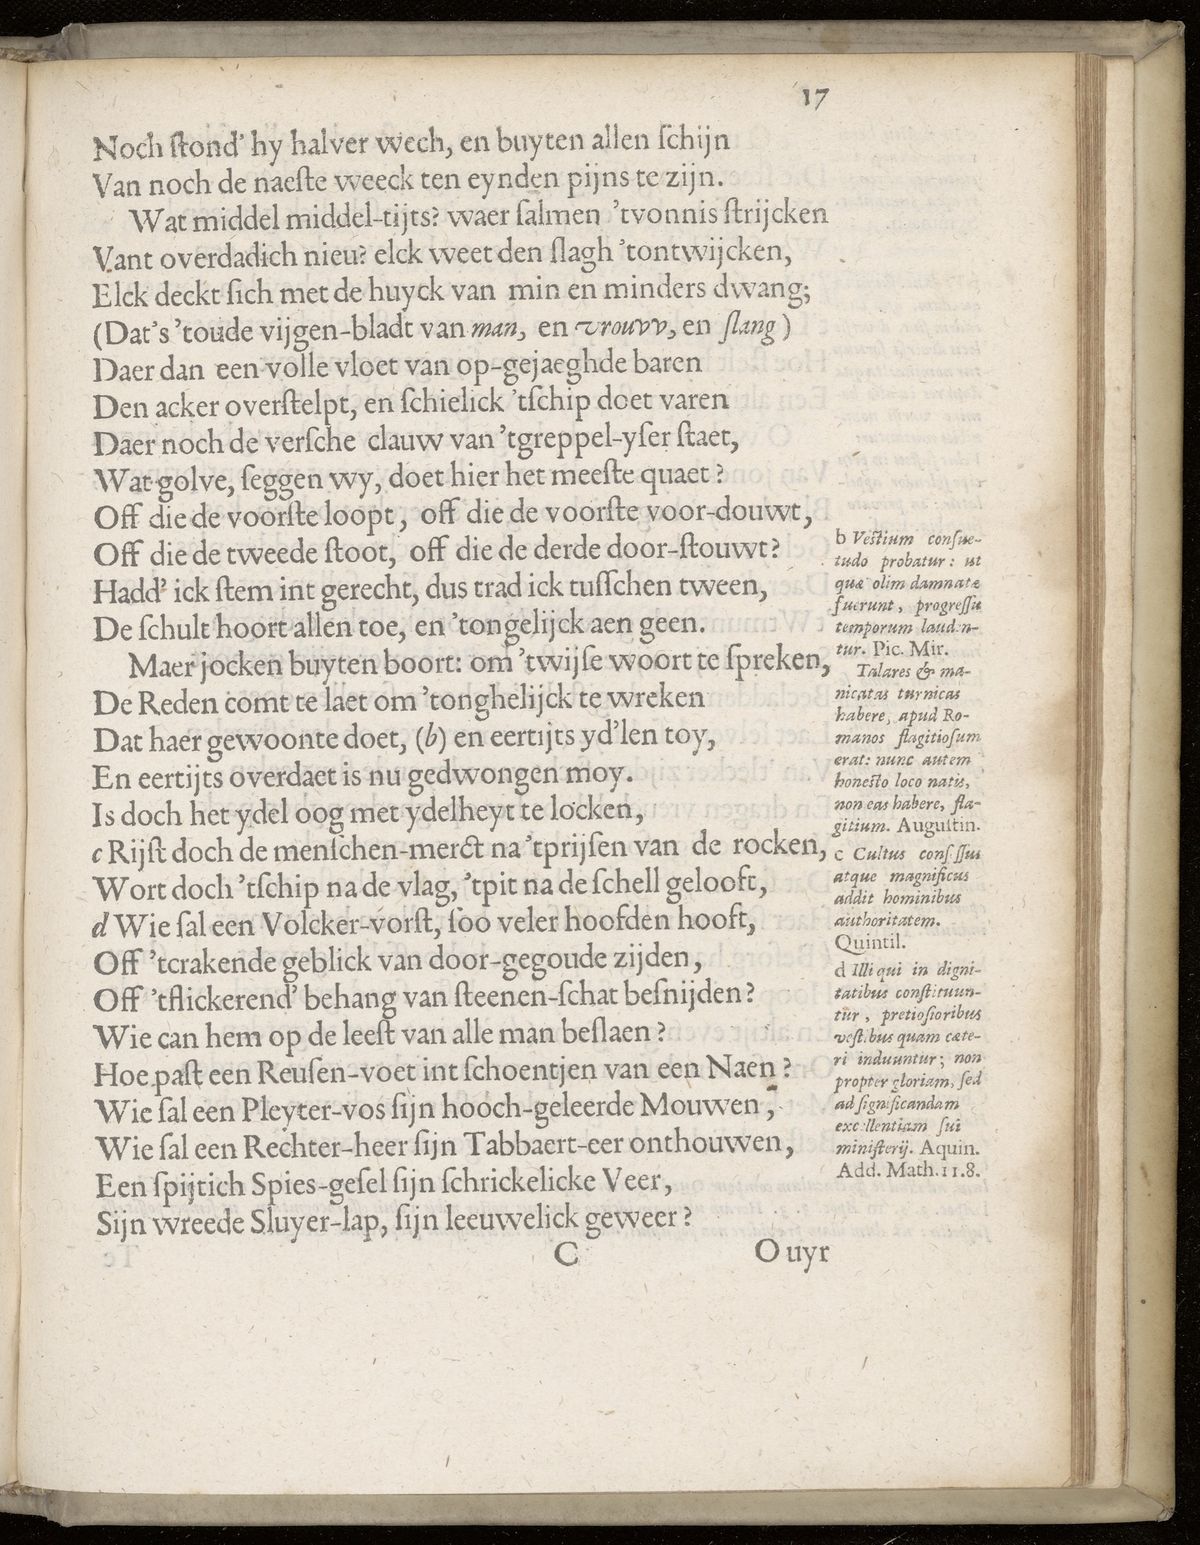 17
Noch ſtond' hy halver wech, en buyten allen ſchijn
Van noch de naeſte weeck ten eynden pijns te zijn.
Wat middel middel-tijts? waer ſalmen 'tvonnis ſtrijcken
Vant overdadich nieu? elck weet den ſlagh 'tontwijcken,
Elck deckt ſich met de huyck van min en minders dwang;
(Dat's 'toude vijgen-bladt van man, en vrouvv, en ſlang)
Daer dan een volle vloet van op-gejaeghde baren
Den acker overſtelpt, en ſchielick 'tſchip doet varen
Daer noch de verſche clauw van 'tgreppel-yſer ſtaet,
Wat golve, ſeggen wy, doet hier het meeſte quaet?
Off die de voorſte loopt, off die de voorſte voor-douwt,
Off die de tweede ſtoot, off die de derde door-ſtouwt?
Hadd' ick ſtem int gerecht, dus trad ick tuſſchen tween,
De ſchult hoort allen toe, en 'tongelijck aen geen.
Maer jocken buyten boort: om 'twijſe woort te ſpreken,
De Reden comt te laet om 'tonghelijck te wreken
Dat haer gewoonte doet, (b) en eertijts yd'len toy,
En eertijts overdaet is nu gedwongen moy.
Is doch het ydel oog met ydelheyt te locken,
c Rijſt doch de menſchen-merct na 'tprijſen van de rocken,
Wort doch 'tſchip na de vlag, 'tpit na de ſchell gelooft,
d Wie ſal een Volcker-vorſt, ſoo veler hoofden hooft,
Off 'tcrakende geblick van door-gegoude zijden,
Off 'tflickerend' behang van ſteenen-ſchat beſnijden?
Wie can hem op de leeſt van alle man beſlaen?
Hoe paſt een Reuſen-voet int ſchoentjen van een Naen?
Wie ſal een Pleyter-vos ſijn hooch-geleerde Mouwen,
Wie ſal een Rechter-heer ſijn Tabbaert-eer onthouwen,
Een ſpijtich Spies-geſel ſijn ſchrickelicke Veer,
Sijn wreede Sluyer-lap, ſijn leeuwelick geweer?
C Ouyr
b Veſtium conſue-
tudo probatur: ut
quæ olim damnatæ
fuerunt, progreſſu
temporum laudan-
tur. Pic. Mir.
Talares & ma-
nicatas turnicas
habere, apud Ro-
manos flagitioſum
erat: nunc autem
honeſto loco natis,
non eas habere, fla-
gitium. Auguſtin.
c Cultus conſeſſus
atque magnificus
addit hominibus
authoritatem.
Quintil.
d Illi qui in digni-
tatibus conſtituun-
tur, pretioſioribus
veſtibus quam cæte-
ri induuntur; non
propter gloriam, ſed
ad ſignificandam
excellentiam ſui
miniſterij. Aquin.
Add. Math. 11.8.